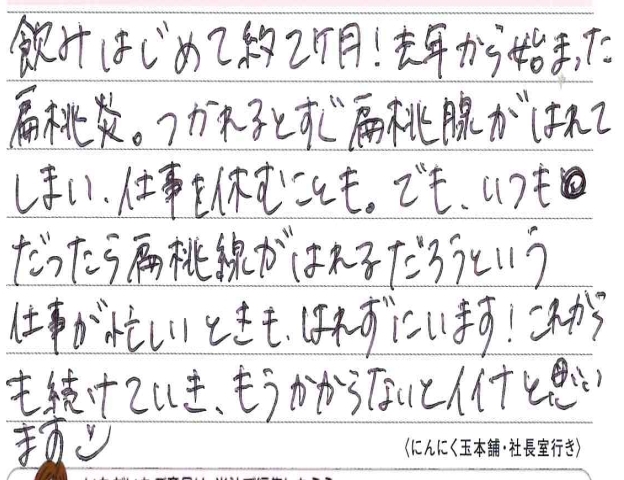 飲みはじめて約2ケ月！去年から始まった
扁桃炎。つかれるとすぐ扁桃腺がはれて
しまい、仕事を休むことも。でも、いつも
だったら扁桃線がはれるだろうという
仕事が忙しいときも、はれずにいます！これから
も続けていき、もうかからないとイイナと思い
ます
〈にんにく玉本舗・社長室行き〉